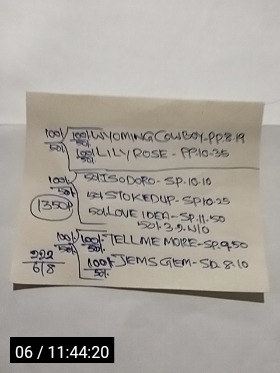 100/ 50/. 100/ 50/. WYOMING COWBOY-PP.8.19
100/ 50/. LILY ROSE - PP.10-35
100/. 50/. 50/ ISODORO- SP.10.10
1350/ 50/ STOKED UP- SP.10.25
50/ LOVE IDEA- SP.11.50
50/. 3.2. W/O
100/. 50/. 100/. 50/. TELL ME MORE- SP.9.50
222 6/8 100/ 50/. JEMS GEM- SD.8.10
06 / 11:44:20